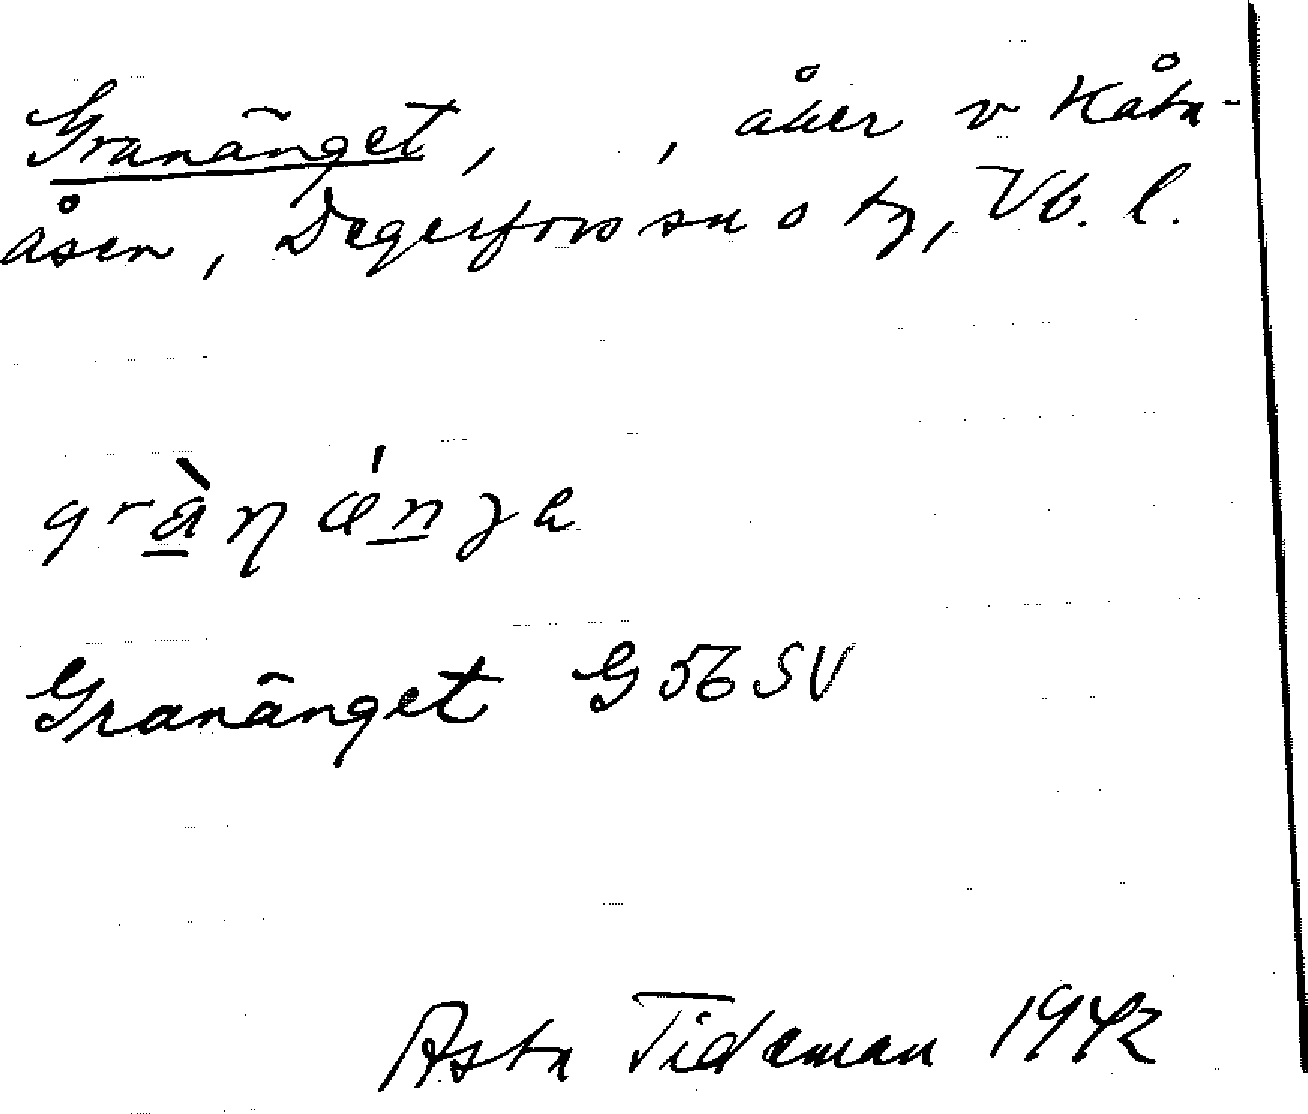 Granänget, , åker v Kåta-
åsen, Degerfors sn o tg, Vb. l.
grànǽnʒa
Granänget G 56 SV
Asta Tideman 1942